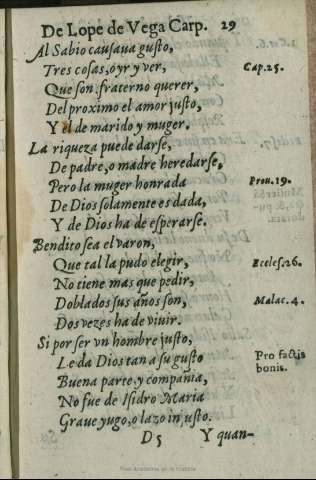 De Lope de Vega Carp. 29
Al Sabio causaua gusto,
Tres cosas, oyr y ver, Cap.25.
Que son fraterno querer,
Del proximo el amor justo,
Y el de marido y muger.
La riqueza puede darse,
De padre, o madre heredarse,
Pero la muger honrada Prou.19.
De Dios solamente es dada,
Y de Dios ha de esperarse.
Bendito sea el varon,
Que tal la pudo elegir, Eccles.26.
No tiene mas que pedir,
Doblados sus años son, Malac.4.
Dos vezes ha de viuir.
Si por ser vn hombre justo,
Le da Dios tan a su gusto Pro factis
Buena parte y compañia, bonis.
No fue de Isidro Maria
Graue yugo, o lazo injusto.
D5 Y quan-